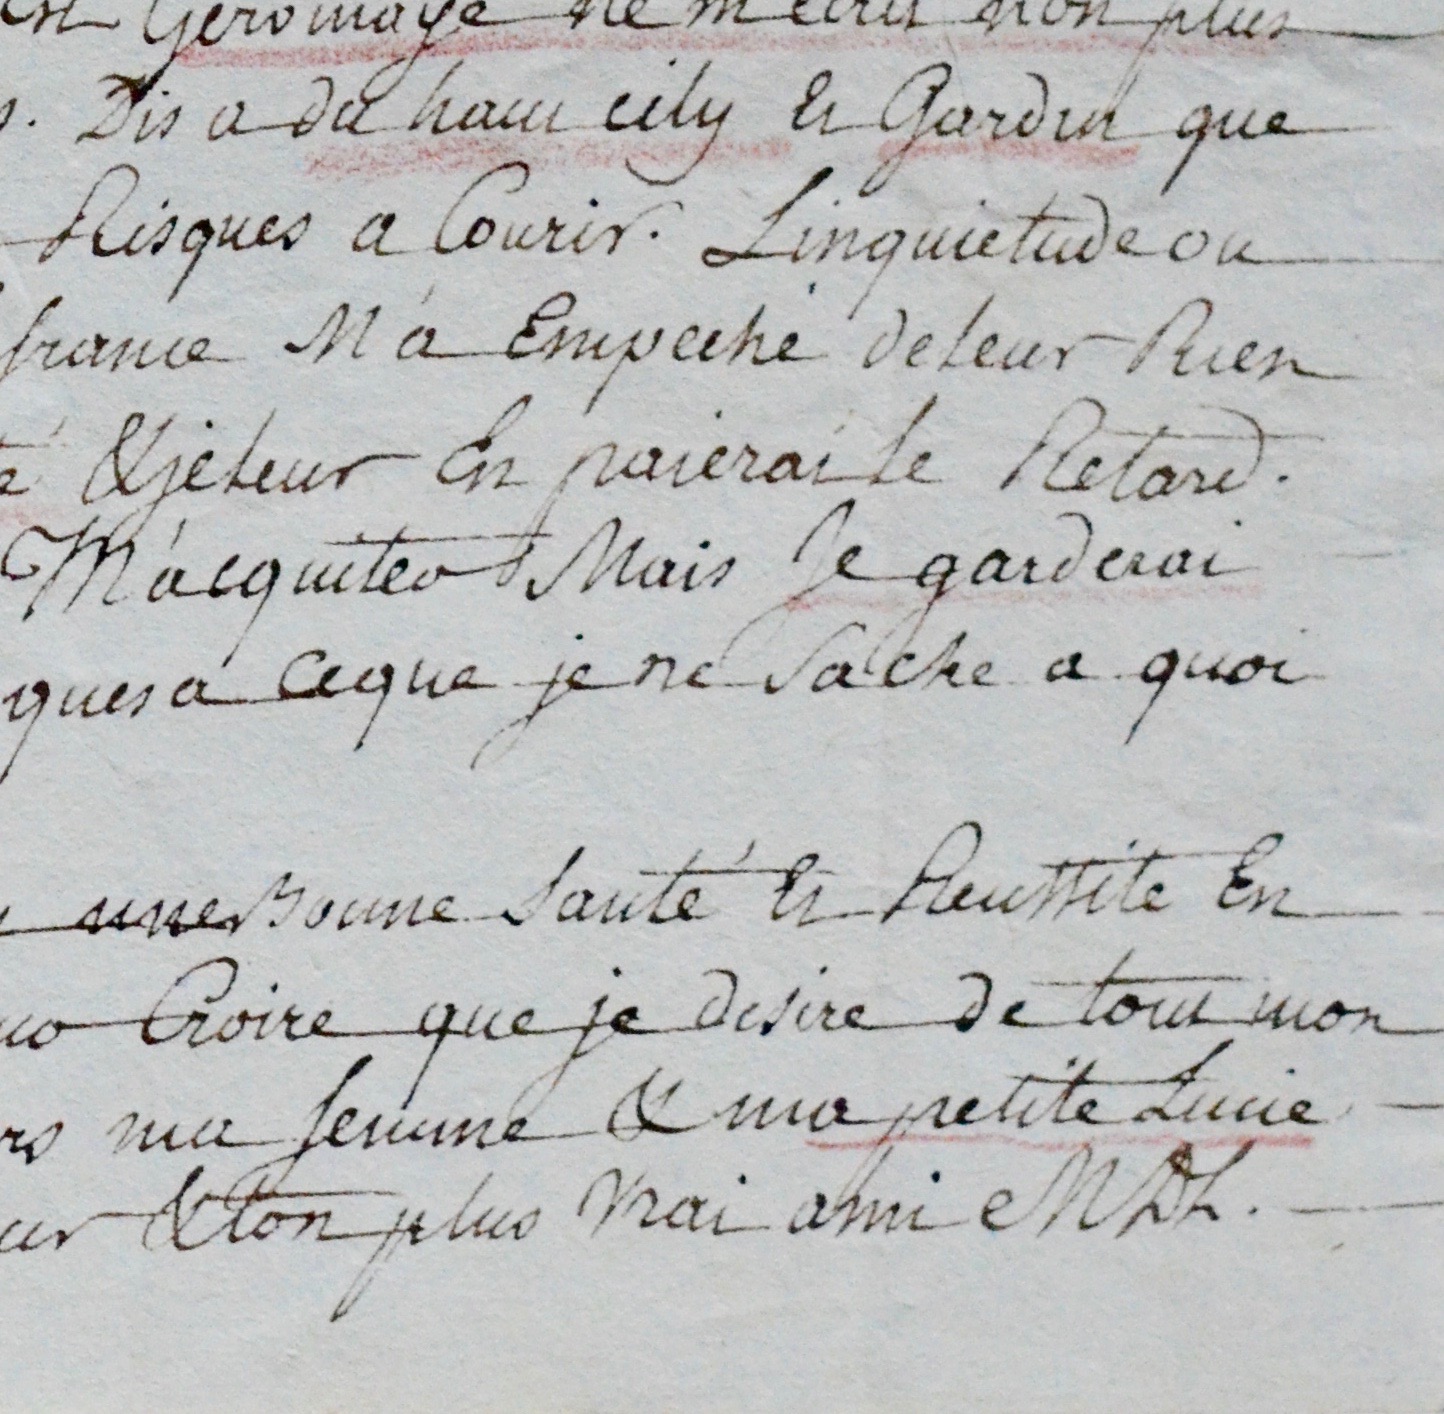 Geromaye ne m'ecrit non plus
Dis a du haut cily Et Gardin que
Risques a Courir. Linquietude ou
france M'a Empeché deleur Rien
té &jeleur En paierai le Retard.
M'acquiter Mais Je garderai
ques a ceque je ne Sache a quoi
une Bonne Santé Et Reussite En
Croire que je desire de tout mon
ma femme & ma petite Lucie
ur & ton plus Vrai ami MDL.